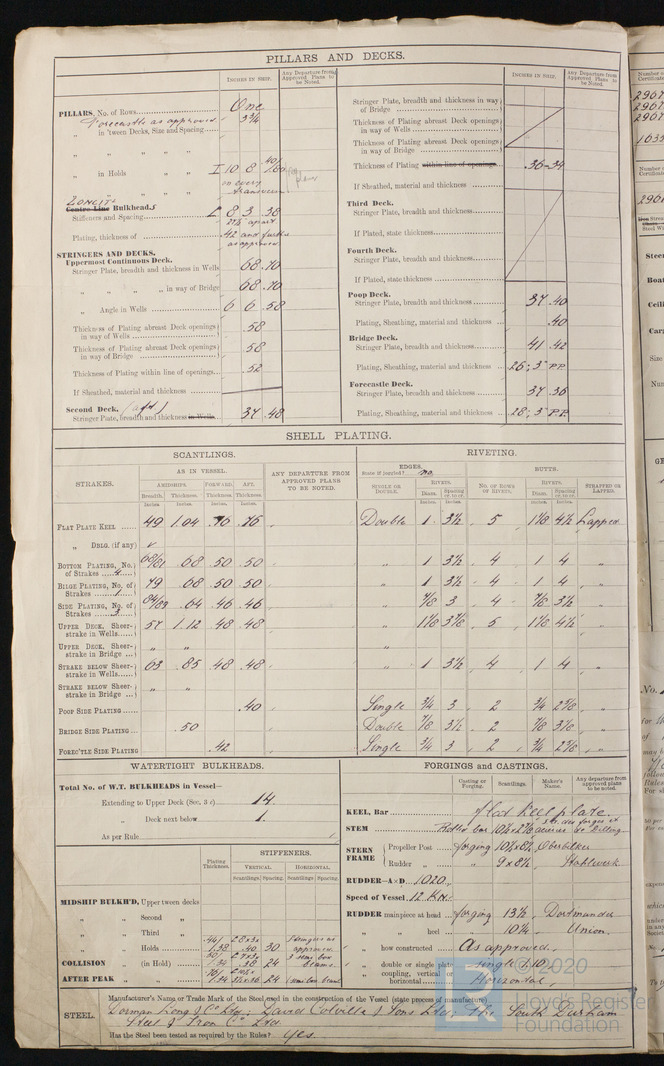 PILLARS AND DECKS.
INCHES IN SHIP.
Any Departure from Approved Plans to be Noted.
PILLARS, No. of Rows One
Forecastle as approved 3¾
„ in 'tween Decks, Size and Spacing
„ „ „ „
„ in Holds „ „ I 10 8
on every transverse
„ „ „ „
Centre Line Bulkheads
Stiffeners and Spacing L 8 3 .38
27½ apart
Plating, thickness of .42 and further as approved
STRINGERS AND DECKS.
Uppermost Continuous Deck.
Stringer Plate, breadth and thickness in Wells 68 .70
„ „ „ „ in way of Bridge 68 .70
„ Angle in Wells 6 6 .58
Thickness of Plating abreast Deck openings in way of Wells .58
Thickness of Plating abreast Deck openings in way of Bridge .58
Thickness of Plating within line of openings .52
If Sheathed, material and thickness
Second Deck. (aft)
Stringer Plate, breadth and thickness in Wells 37 .48
INCHES IN SHIP.
Any Departure from Approved Plans to be Noted.
Stringer Plate, breadth and thickness in way of Bridge
Thickness of Plating abreast Deck openings in way of Wells
Thickness of Plating abreast Deck openings in way of Bridge
Thickness of Plating within line of openings .36-.34
If Sheathed, material and thickness
Third Deck.
Stringer Plate, breadth and thickness
If Plated, state thickness
Fourth Deck.
Stringer Plate, breadth and thickness
If Plated, state thickness
Poop Deck.
Stringer Plate, breadth and thickness 37 .40
Plating, Sheathing, material and thickness .40
Bridge Deck.
Stringer Plate, breadth and thickness 41 .42
Plating, Sheathing, material and thickness .26; 3" P.P.
Forecastle Deck.
Stringer Plate, breadth and thickness 37 .36
Plating, Sheathing, material and thickness .28; 3" P.P.
SHELL PLATING.
SCANTLINGS.
RIVETING.
STRAKES.
AS IN VESSEL.
AMIDSHIPS. FORWARD. AFT.
Breadth. Thickness. Thickness. Thickness.
Inches. Inches. Inches. Inches.
ANY DEPARTURE FROM APPROVED PLANS TO BE NOTED.
EDGES.
State if joggled? no.
SINGLE OR DOUBLE.
RIVETS.
Diam. Spacing cr. to cr.
Inches. Inches.
BUTTS.
NO. OF ROWS OF RIVETS.
RIVETS.
Diam. Spacing cr. to cr.
Inches. Inches.
STRAPPED OR LAPPED.
FLAT PLATE KEEL 49 1.04 .76 .76 Double 1 3½ 5 1⅛ 4½ Lapped
„ DBLG. (if any) ✓
BOTTOM PLATING, No. of Strakes 4 68/81 .68 .50 .50 „ 1 3½ 4 1 4 „
BILGE PLATING, No. of Strakes 1 79 .68 .50 .50 „ 1 3½ 4 1 4 „
SIDE PLATING, No. of Strakes 3 .64 .46 .46 „ ⅞ 3 4 ⅞ 3½ „
UPPER DECK, Sheerstrake in Wells 57 1.12 .48 .48 „ 1⅛ 3⅞ 5 1⅛ 4½ „
UPPER DECK, Sheerstrake in Bridge „ „ „
STRAKE BELOW SHEERstrake in Wells 63 .85 .48 .48 „ 1 3½ 4 1 4 „
STRAKE BELOW SHEERstrake in Bridge „ „
POOP SIDE PLATING .40 Single ¾ 3 2 ¾ 2⅝ „
BRIDGE SIDE PLATING .50 Double ⅞ 3½ 2 ⅞ 3⅛ „
FOREC'TLE SIDE PLATING .42 Single ¾ 3 2 ¾ 2⅝ „
WATERTIGHT BULKHEADS.
Total No. of W.T. BULKHEADS in Vessel—
Extending to Upper Deck (Sec. 3 c) 14
„ Deck next below 1
As per Rule
Plating Thickness.
STIFFENERS.
VERTICAL. HORIZONTAL.
Scantlings. Spacing. Scantlings. Spacing.
MIDSHIP BULKH'D, Upper tween decks
„ „ Second „
„ „ Third „
„ „ Holds 30 Stringers as approved
COLLISION „ (in Hold) 24 3 semi box beams
AFTER PEAK „ „ 24 1 semi box beam
FORGINGS AND CASTINGS.
Casting or Forging. Scantlings. Maker's Name. Any departure from approved plans to be noted.
KEEL, Bar flat keel plate.
STEM Rolled bar
STERN FRAME
Propeller Post forging 10½x8½ Oberbilker
Rudder „ „ 9x8½ Stahlwerk
RUDDER—A×D 1020
Speed of Vessel 12 Kn.
RUDDER mainpiece at head forging 13½ Dortmunder
„ „ heel „ 10¼ Union.
„ how constructed As approved.
„ double or single plate single 1.10
„ coupling, vertical or horizontal Horizontal
STEEL.
Manufacturer's Name or Trade Mark of the Steel used in the construction of the Vessel (state process of manufacture)
Dorman Long & Co Ltd; David Colville & Sons Ltd; The South Durham
Steel & Iron Co Ltd.
Has the Steel been tested as required by the Rules? Yes.
© 2020
Lloyd's Register
Foundation